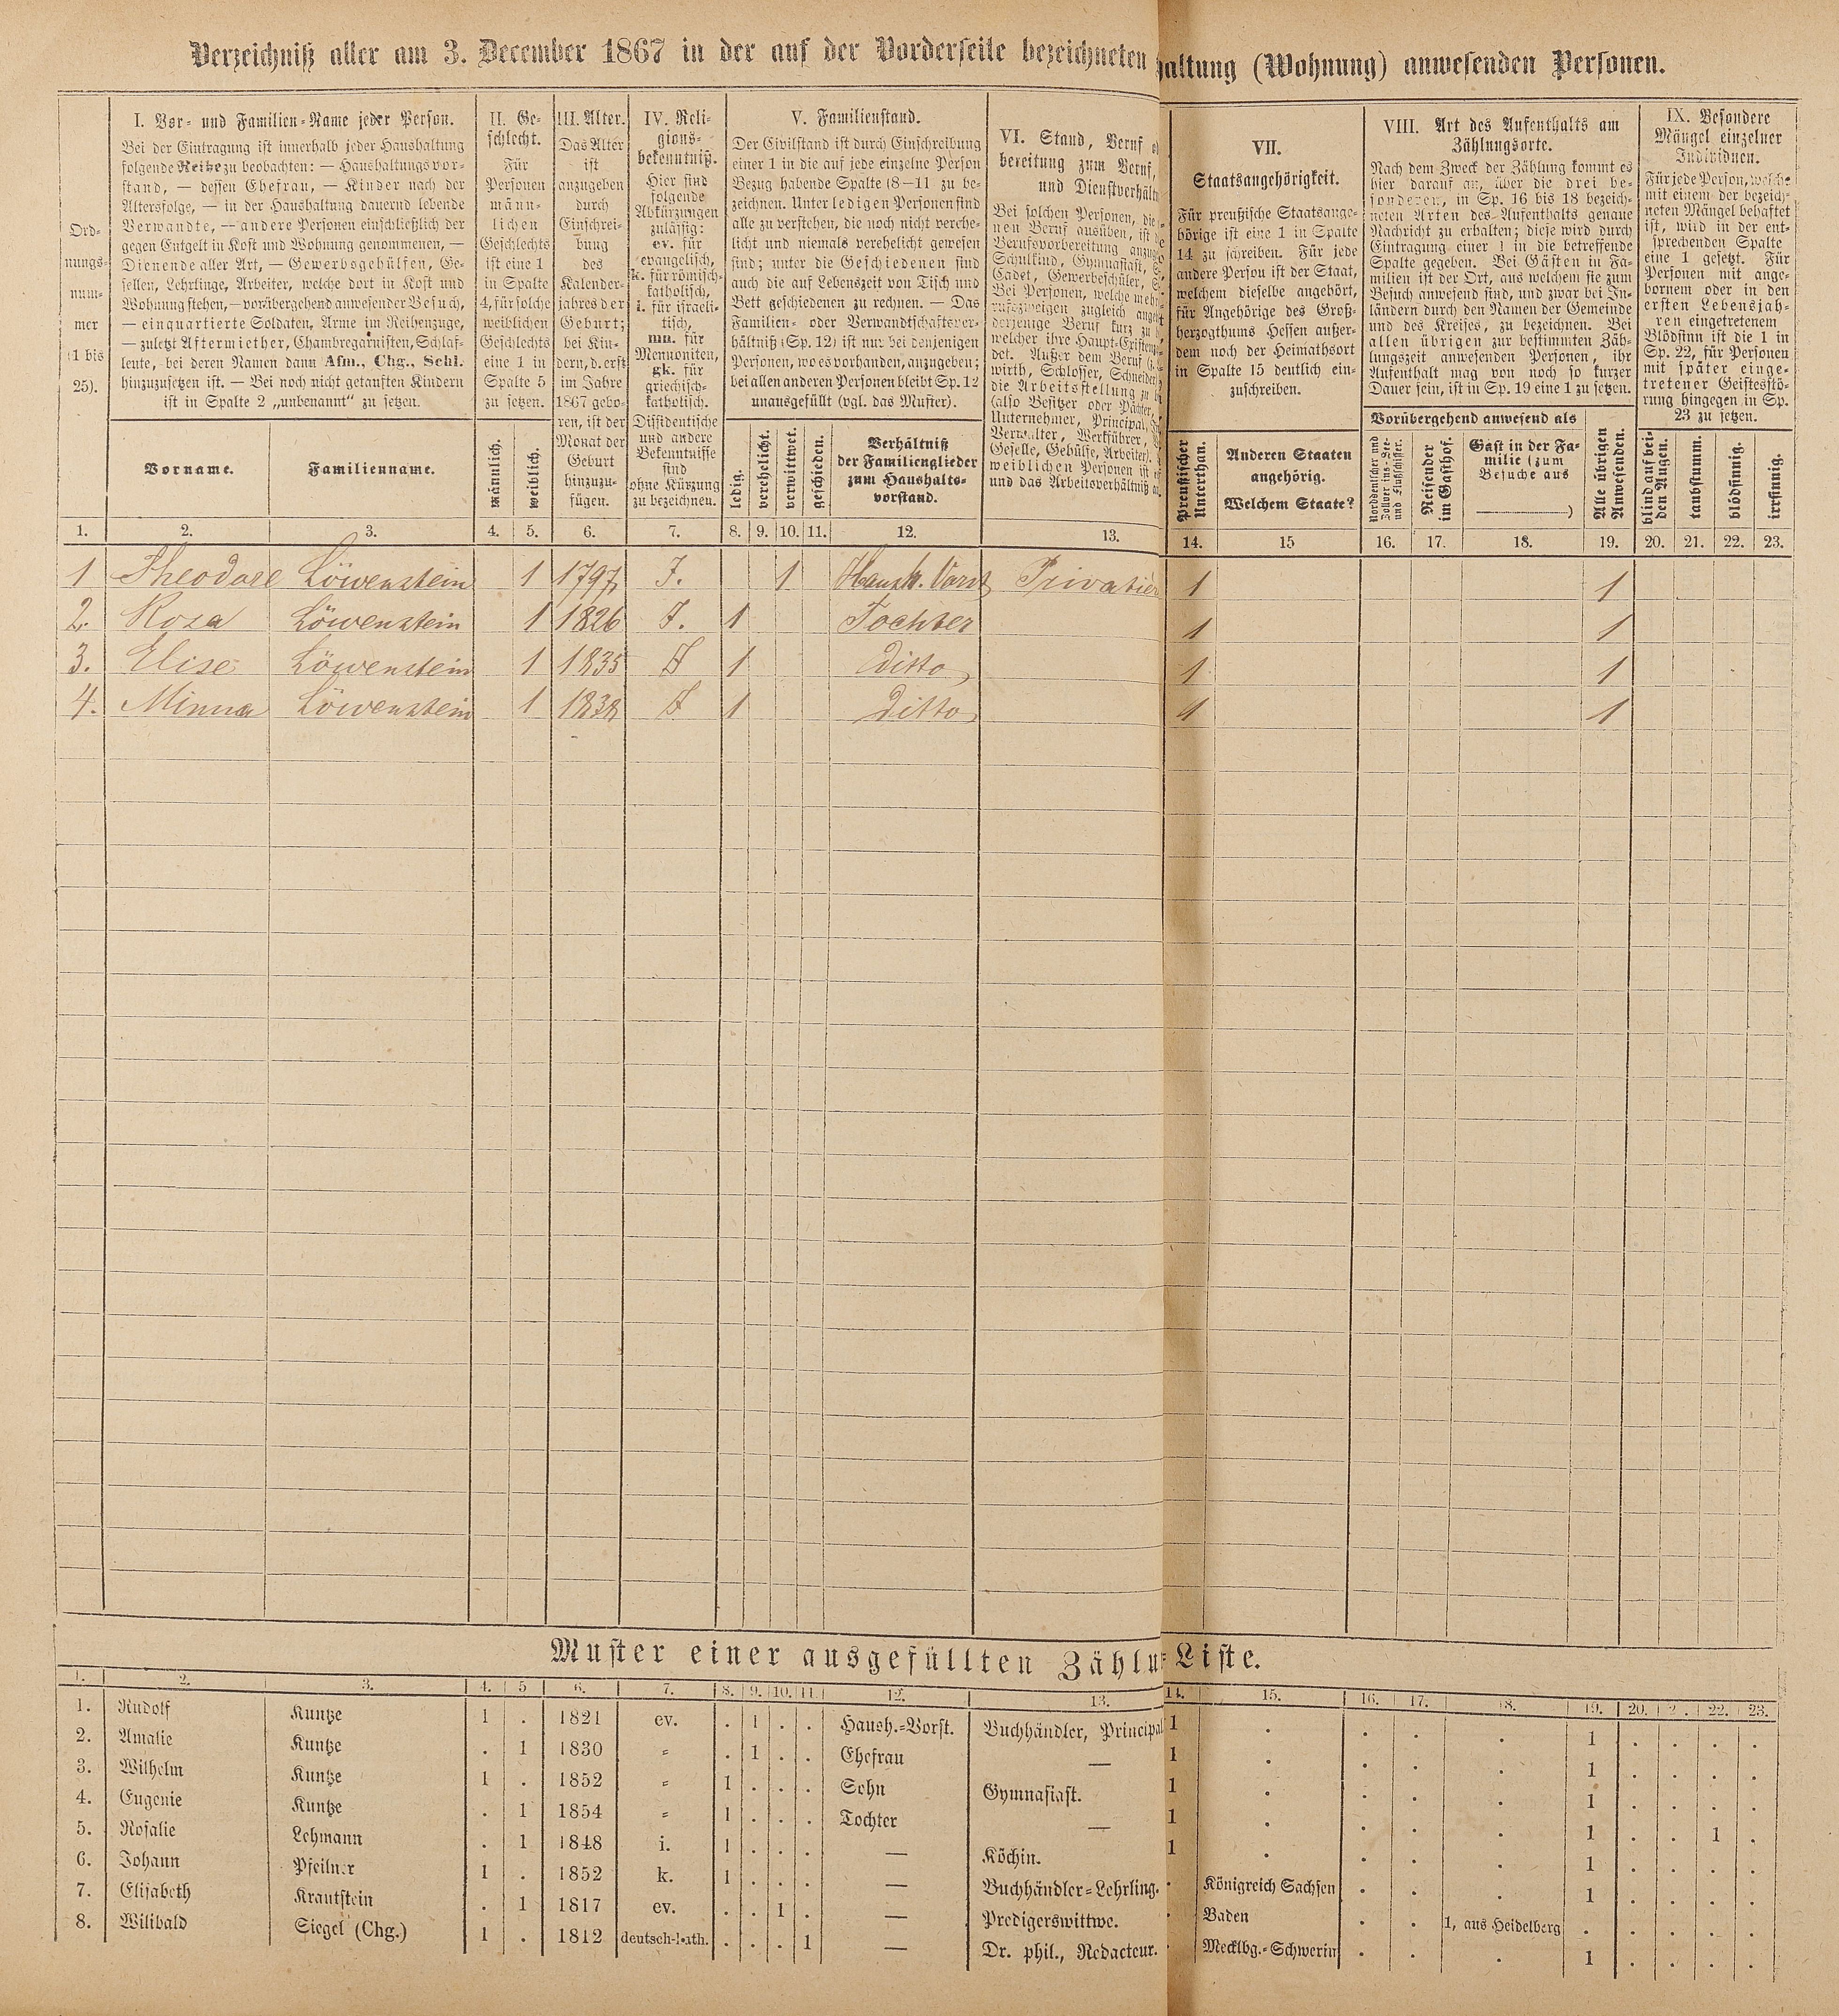 Verzeichniß aller am 3. December 1867 in der auf der Vorderseite bezeichneten haltung (Wohnung) anwesenden Personen.
Ord-
nungs-
num-
mer
(1 bis
25).
I. Vor- und Familien-Name jeder Person.
Bei der Eintragung ist innerhalb jeder Haushaltung
folgende Reihe zu beobachten: — Haushaltungsvor-
stand, — dessen Ehefrau, — Kinder nach der
Altersfolge, — in der Haushaltung dauernd lebende
Verwandte, — andere Personen einschließlich der
gegen Entgelt in Kost und Wohnung genommenen, —
Dienende aller Art, — Gewerbsgehülfen, Ge-
sellen, Lehrlinge, Arbeiter, welche dort in Kost und
Wohnung stehen, — vorübergehend anwesender Besuch,
— einquartierte Soldaten, Arme im Reihenzuge,
— zuletzt Aftermiether, Chambregarnisten, Schlaf-
leute, bei deren Namen dann Afm., Chg., Schl.
hinzuzusetzen ist. — Bei noch nicht getauften Kindern
ist in Spalte 2 „unbenannt“ zu setzen.
Vorname.
Familienname.
II. Ge-
schlecht.
Für
Personen
männ-
lichen
Geschlechts
ist eine 1
in Spalte
4, für solche
weiblichen
Geschlechts
eine 1 in
Spalte 5
zu setzen.
männlich.
weiblich.
III. Alter.
Das Alter
ist
anzugeben
durch
Einschrei-
bung
des
Kalender-
jahres der
Geburt;
bei Kin-
dern, d. erst
im Jahre
1867 gebo-
ren, ist der
Monat der
Geburt
hinzuzu-
fügen.
IV. Reli-
gions-
bekenntniß.
Hier sind
folgende
Abkürzungen
zulässig:
ev. für
evangelisch,
k. für römisch-
katholisch,
i. für israeli-
tisch,
mn. für
Mennoniten,
gk. für
griechisch-
katholisch.
Dissidentische
und andere
Bekenntnisse
sind
ohne Kürzung
zu bezeichnen.
V. Familienstand.
Der Civilstand ist durch Einschreibung
einer 1 in die auf jede einzelne Person
Bezug habende Spalte (8—11 zu be-
zeichnen. Unter ledigen Personen sind
alle zu verstehen, die noch nicht verehe-
licht und niemals verehelicht gewesen
sind; unter die Geschiedenen sind
auch die auf Lebenszeit von Tisch und
Bett geschiedenen zu rechnen. — Das
Familien- oder Verwandtschaftsver-
hältniß (Sp. 12) ist nur bei denjenigen
Personen, wo es vorhanden, anzugeben;
bei allen anderen Personen bleibt Sp. 12
unausgefüllt (vgl. das Muster).
ledig.
verehelicht.
verwittwet.
geschieden.
Verhältniß
der Familienglieder
zum Haushalts-
vorstand.
VI. Stand, Beruf
bereitung zum Beruf,
und Dienstverhält
Bei solchen Personen, die
nen Beruf ausüben, ist
Berufsvorbereitung
Schulkind, Gymnasiast,
Cadet, Gewerbeschüler,
Bei Personen, welche
rufszweigen zugleich
derjenige Beruf kurz zu
welcher ihre Haupt-
det. Außer dem Beruf
wirth, Schlosser, Schneider
die Arbeitsstellung zu
(also Besitzer oder Pächter,
Unternehmer, Principal,
Verwalter, Werkführer,
Geselle, Gehülfe, Arbeiter).
weiblichen Personen ist
und das Arbeitsverhältniß
VII.
Staatsangehörigkeit.
Für preußische Staatsange-
hörige ist eine 1 in Spalte
14 zu schreiben. Für jede
andere Person ist der Staat,
welchem dieselbe angehört,
für Angehörige des Groß-
herzogthums Hessen außer-
dem noch der Heimathsort
in Spalte 15 deutlich ein-
zuschreiben.
Preußischer
Unterthan.
Anderen Staaten
angehörig.
Welchem Staate?
VIII. Art des Aufenthalts am
Zählungsorte.
Nach dem Zweck der Zählung kommt es
hier darauf an, über die drei be-
sonderen, in Sp. 16 bis 18 bezeich-
neten Arten des Aufenthalts genaue
Nachricht zu erhalten; diese wird durch
Eintragung einer 1 in die betreffende
Spalte gegeben. Bei Gästen in Fa-
milien ist der Ort, aus welchem sie zum
Besuch anwesend sind, und zwar bei In-
ländern durch den Namen der Gemeinde
und des Kreises, zu bezeichnen. Bei
allen übrigen zur bestimmten Zäh-
lungszeit anwesenden Personen, ihr
Aufenthalt mag von noch so kurzer
Dauer sein, ist in Sp. 19 eine 1 zu setzen.
Vorübergehend anwesend als
Norddeutscher und
Zollver.ins-See-
und Flußschiffer.
Reisender
im Gasthof.
Gast in der Fa-
milie (zum
Besuche aus
)
Alle übrigen
Anwesenden.
IX. Besondere
Mängel einzelner
Individuen.
Für jede Person, welche
mit einem der bezeich-
neten Mängel behaftet
ist, wird in der ent-
sprechenden Spalte
eine 1 gesetzt. Für
Personen mit ange-
bornem oder in den
ersten Lebensjah-
ren eingetretenem
Blödsinn ist die 1 in
Sp. 22, für Personen
mit später einge-
tretener Geistesstö-
rung hingegen in Sp.
23 zu setzen.
blind auf bei-
den Augen.
taubstumm.
blödsinnig.
irrsinnig.
1. 2. 3. 4. 5. 6. 7. 8. 9. 10. 11. 12. 13. 14. 15 16. 17. 18. 19. 20. 21. 22. 23.
1 Theodore Löwenstein 1 1797 J. 1 Haush. Vorst Privatier 1 1
2. Roza Löwenstein 1 1826 J. 1 Tochter 1 1
3. Elise Löwenstein 1 1835 J 1 ditto 1 1
4. Minna Löwenstein 1 1838 J 1 ditto 1 1
Muster einer ausgefüllten Zählu Liste.
1. 2. 3. 4. 5 6. 7. 8. 9. 10. 11. 12. 13. 14. 15. 16. 17. 18. 19. 20. 2 . 22. 23.
1. Rudolf Kuntze 1 . 1821 ev. . 1 . . Haush.-Vorst. Buchhändler, Principal 1 . . . . 1 . . . .
2. Amalie Kuntze . 1 1830 = . 1 . . Ehefrau — 1 . . . . 1 . . . .
3. Wilhelm Kuntze 1 . 1852 = 1 . . . Sohn Gymnasiast. 1 . . . . 1 . . . .
4. Eugenie Kuntze . 1 1854 = 1 . . . Tochter — 1 . . . . 1 . . 1 .
5. Rosalie Lehmann . 1 1848 i. 1 . . . — Köchin. 1 . . . . 1 . . . .
6. Johann Pfeilner 1 . 1852 k. 1 . . . — Buchhändler-Lehrling. . Königreich Sachsen . . . 1 . . . .
7. Elisabeth Krautstein . 1 1817 ev. . . 1 . — Predigerswittwe. . Baden . . 1, aus Heidelberg . . . . .
8. Wilibald Siegel (Chg.) 1 . 1812 deutsch-kath. . . . 1 — Dr. phil., Redacteur. . Mecklbg.-Schwerin . . . 1 . . . .